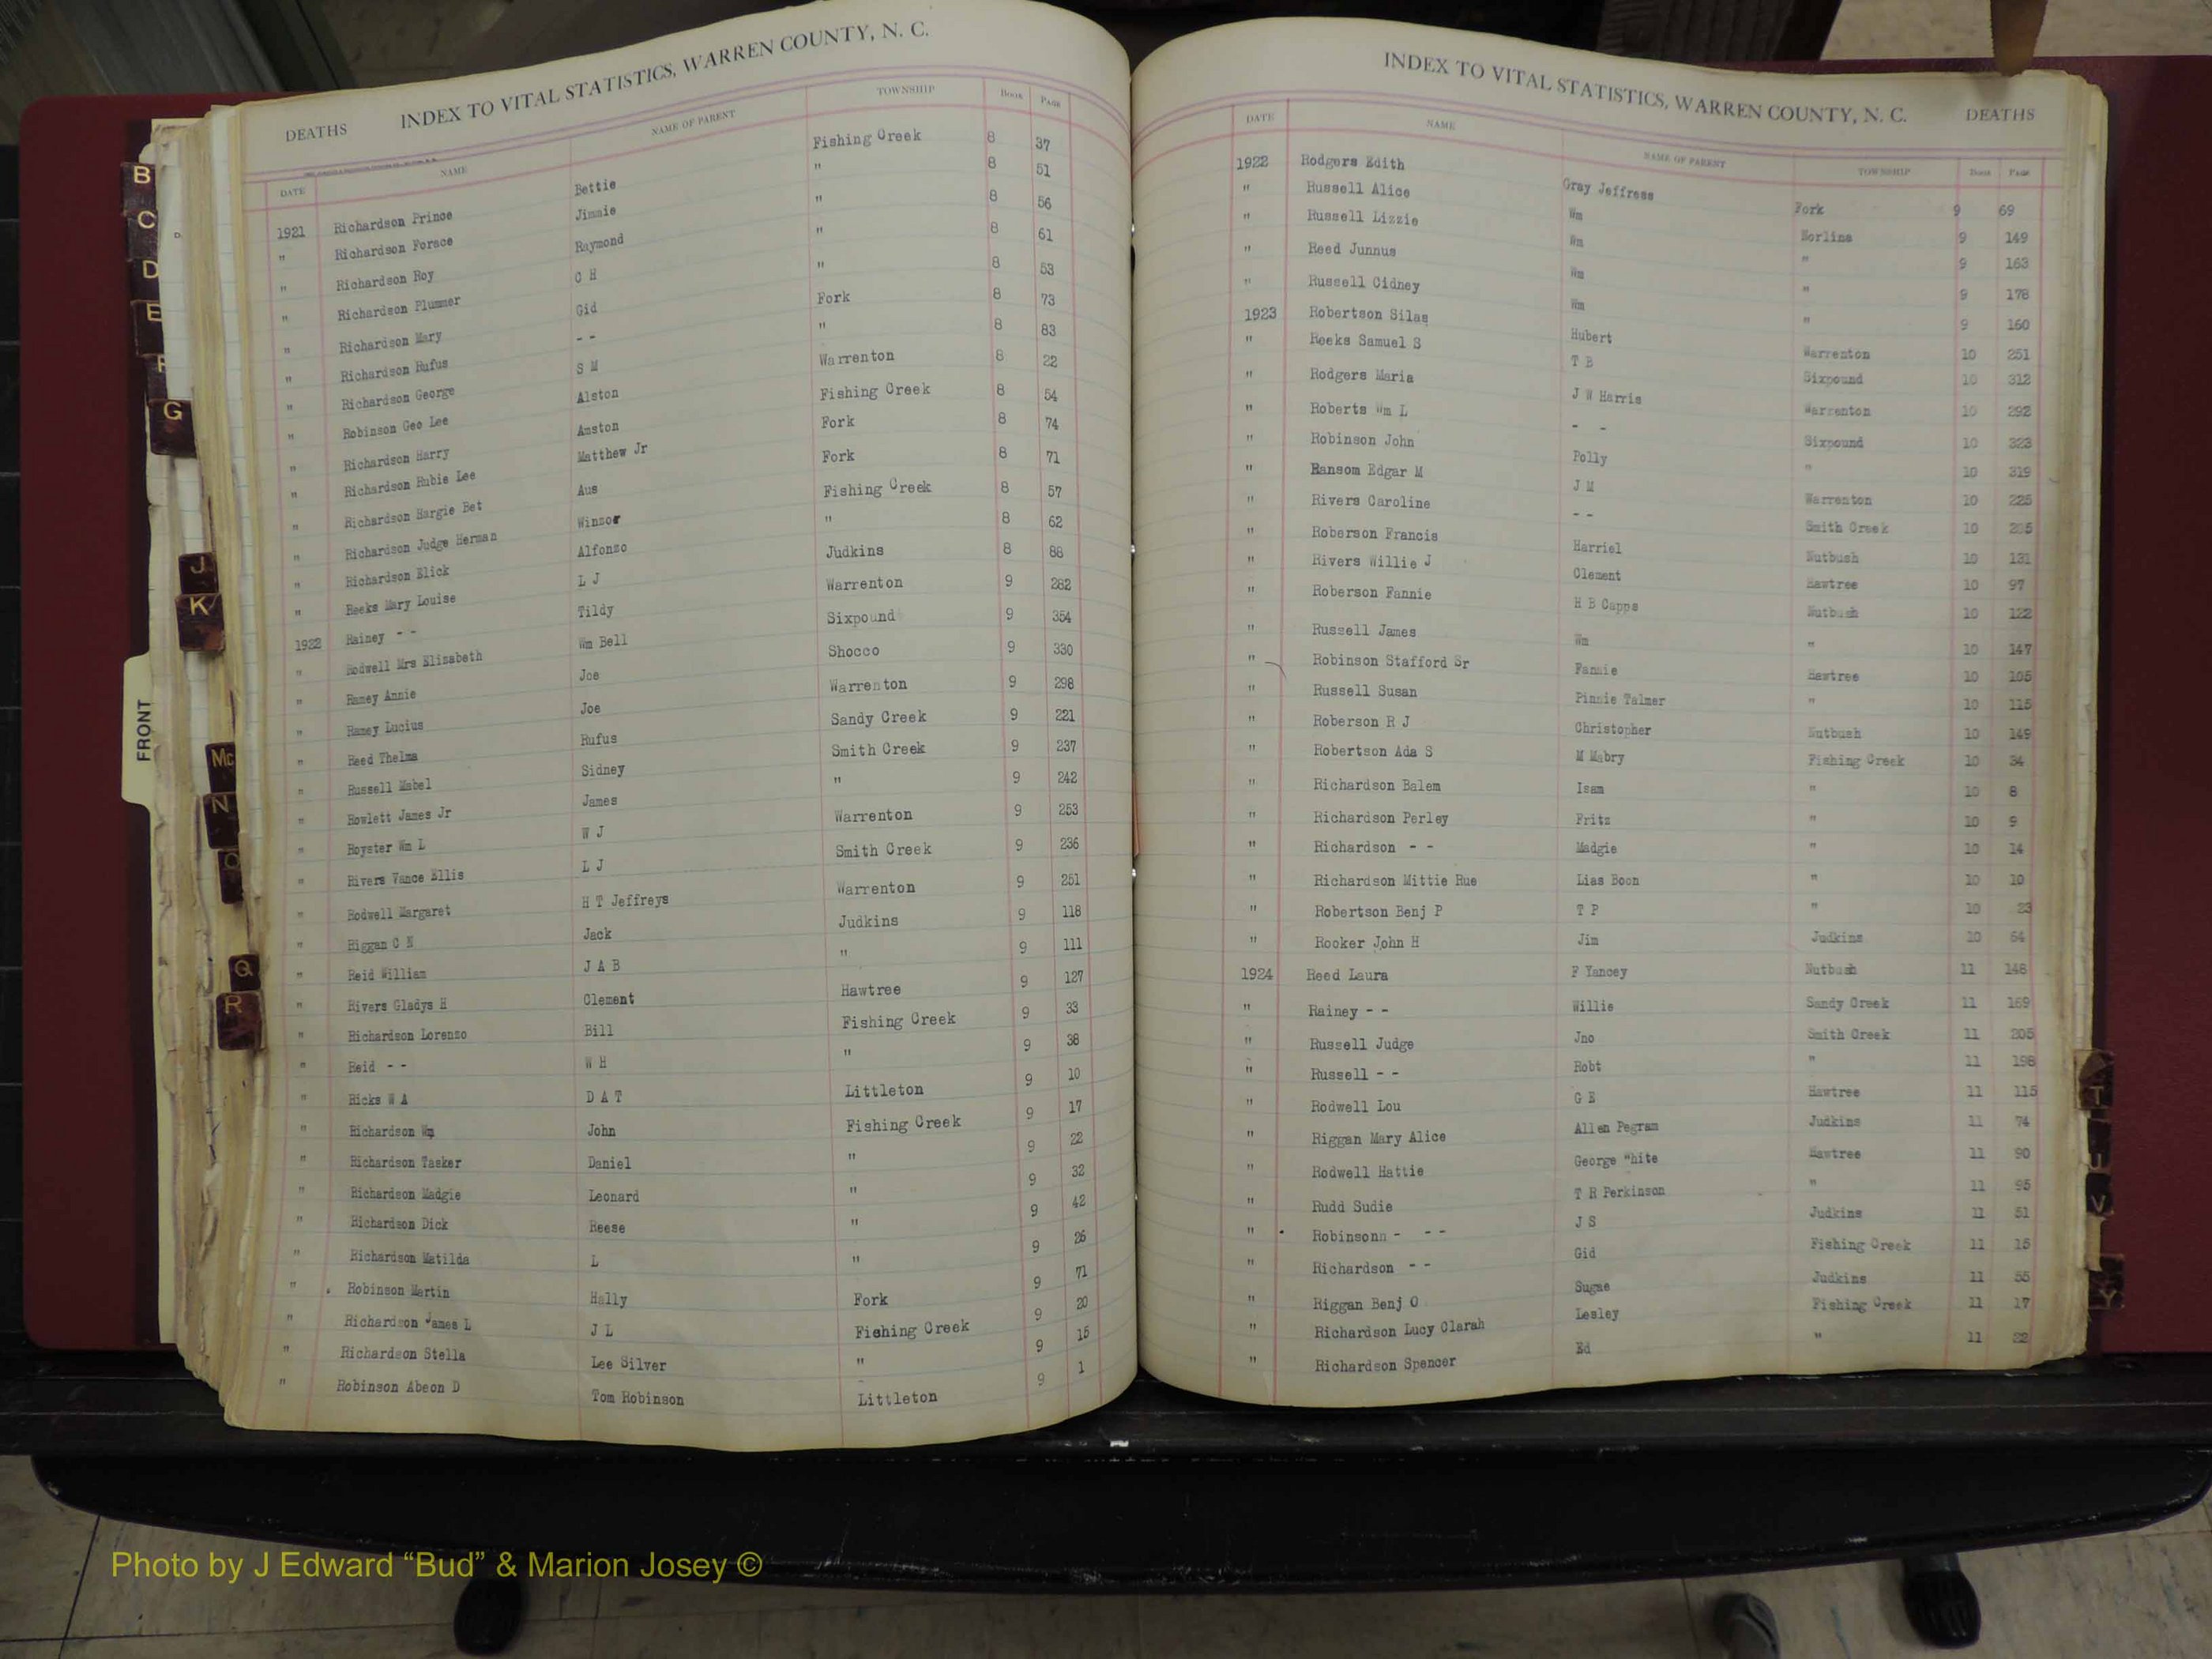 DEATHS INDEX TO VITAL STATISTICS, WARREN COUNTY, N. C.
DATE NAME NAME OF PARENT TOWNSHIP BOOK PAGE
1921 Richardson Prince Bettie Fishing Creek 8 37
" Richardson Forace Jimmie " 8 51
" Richardson Roy Raymond " 8 56
" Richardson Plummer C H " 8 61
" Richardson Mary Gid " 8 53
" Richardson Rufus - - Fork 8 73
" Richardson George S M " 8 83
" Robinson Geo Lee Alston Warrenton 8 22
" Richardson Harry Auston Fishing Creek 8 54
" Richardson Rubie Lee Matthew Jr Fork 8 74
" Richardson Hargie Bet Aus Fork 8 71
" Richardson Judge Herman Winzor Fishing Creek 8 57
" Richardson Elick Alfonzo " 8 62
" Reeks Mary Louise L J Judkins 8 88
1922 Rainey - - Tildy Warrenton 9 282
" Rodwell Mrs Elizabeth Wm Bell Sixpound 9 354
" Ramey Annie Joe Shocco 9 330
" Ramey Lucius Joe Warrenton 9 298
" Reed Thelma Rufus Sandy Creek 9 221
" Russell Mabel Sidney Smith Creek 9 237
" Rowlett James Jr James " 9 242
" Royster Wm L W J Warrenton 9 253
" Rivers Vance Ellis L J Smith Creek 9 236
" Rodwell Margaret H T Jeffreys Warrenton 9 251
" Riggan C N Jack Judkins 9 118
" Reid William J A B " 9 111
" Rivers Gladys H Clement Hawtree 9 127
" Richardson Lorenzo Bill Fishing Creek 9 33
" Reid - - W H " 9 38
" Ricks W A D A T Littleton 9 10
" Richardson Wm John Fishing Creek 9 17
" Richardson Tasker Daniel " 9 22
" Richardson Madgie Leonard " 9 32
" Richardson Dick Reese " 9 42
" Richardson Matilda L " 9 26
" Robinson Martin Hally Fork 9 71
" Richardson James L J L Fishing Creek 9 20
" Richardson Stella Lee Silver " 9 15
" Robinson Abeon D Tom Robinson Littleton 9 1
INDEX TO VITAL STATISTICS, WARREN COUNTY, N. C. DEATHS
DATE NAME NAME OF PARENT TOWNSHIP BOOK PAGE
1922 Rodgers Edith Gray Jeffress Fork 9 69
" Russell Alice Wm Norlina 9 149
" Russell Lizzie Wm " 9 163
" Reed Junnus Wm " 9 178
" Russell Cidney Wm " 9 160
1923 Robertson Silas Hubert Warrenton 10 251
" Reeks Samuel S T B Sixpound 10 312
" Rodgers Maria J W Harris Warrenton 10 292
" Roberts Wm L - - Sixpound 10 323
" Robinson John Polly " 10 319
" Ransom Edgar M J M Warrenton 10 225
" Rivers Caroline - - Smith Creek 10
" Roberson Francis Harriel Nutbush 10 131
" Rivers Willie J Clement Hawtree 10 97
" Roberson Fannie H B Capps Nutbush 10 122
" Russell James Wm " 10 147
" Robinson Stafford Sr Fannie Hawtree 10 105
" Russell Susan Pinnie Talmer " 10 115
" Roberson R J Christopher Nutbush 10 149
" Robertson Ada S M Mabry Fishing Creek 10 34
" Richardson Balem Isam " 10 8
" Richardson Perley Fritz " 10 9
" Richardson - - Madgie " 10 14
" Richardson Mittie Rue Lias Boon " 10 10
" Robertson Benj P T P " 10 23
" Rooker John H Jim Judkins 10 54
1924 Reed Laura F Yancey Nutbush 11 148
" Rainey - - Willie Sandy Creek 11 169
" Russell Judge Jno Smith Creek 11 205
" Russell - - Robt " 11 198
" Rodwell Lou G E Hawtree 11 115
" Riggan Mary Alice Allen Pegram Judkins 11 74
" Rodwell Hattie George "hite Hawtree 11 90
" Rudd Sudie T R Perkinson " 11 95
" Robinsonn - - - J S Judkins 11 51
" Richardson - - Gid Fishing Creek 11 15
" Riggan Benj O Sugae Judkins 11 55
" Richardson Lucy Clarah Lesley Fishing Creek 11 17
" Richardson Spencer Ed " 11 22
B
C
D
E
F
G
J
K
FRONT
Mc
N
O
Q
R
T
U
V
Y
Photo by J Edward “Bud” & Marion Josey ©